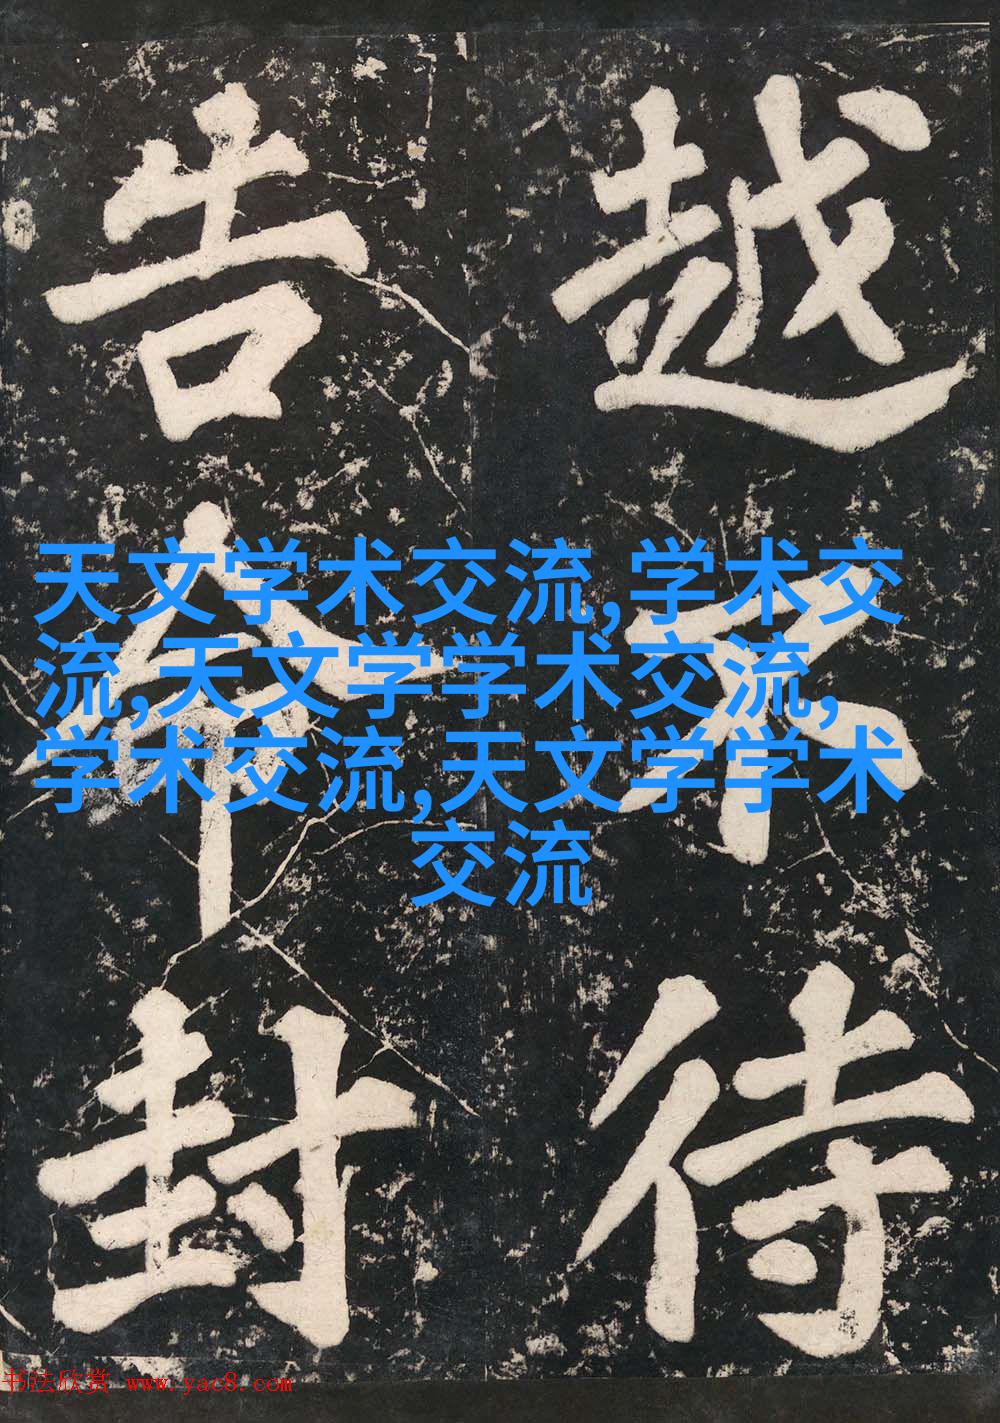 越不待
告封
天文学术交流,学术交
流,天文学学术交流,
学术交流,天文学学术
交流
书法欣赏 www.yac8.com